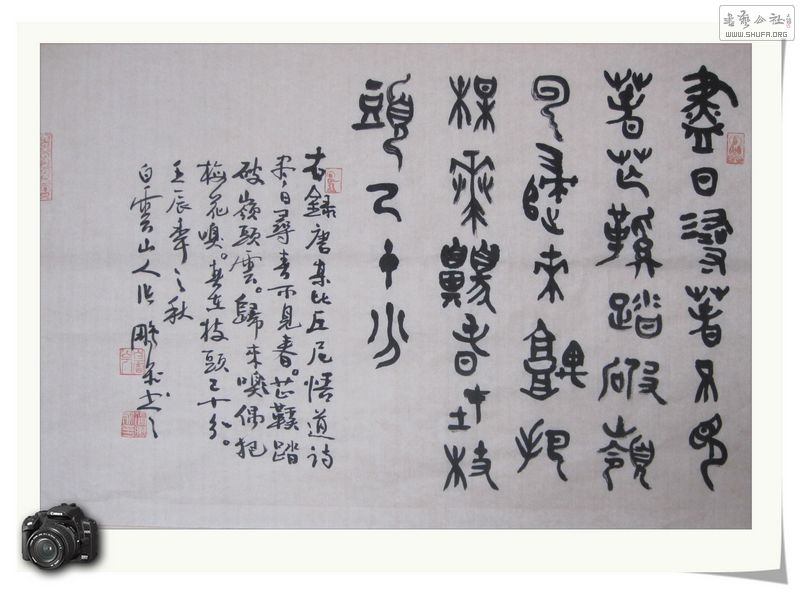 盡日尋春不見
春芒鞵踏破嶺
云歸來把
梅花嗅春在枝
頭已十分
右錄唐某比丘尼悟道诗
尽日尋春不見春。芒鞵踏
破嶺頭雲。歸來嗅偶把
梅花嗅。春在枝頭已十分。
壬辰年之秋
白雲山人
書藝公社
WWW.SHUFA.ORG
Canon